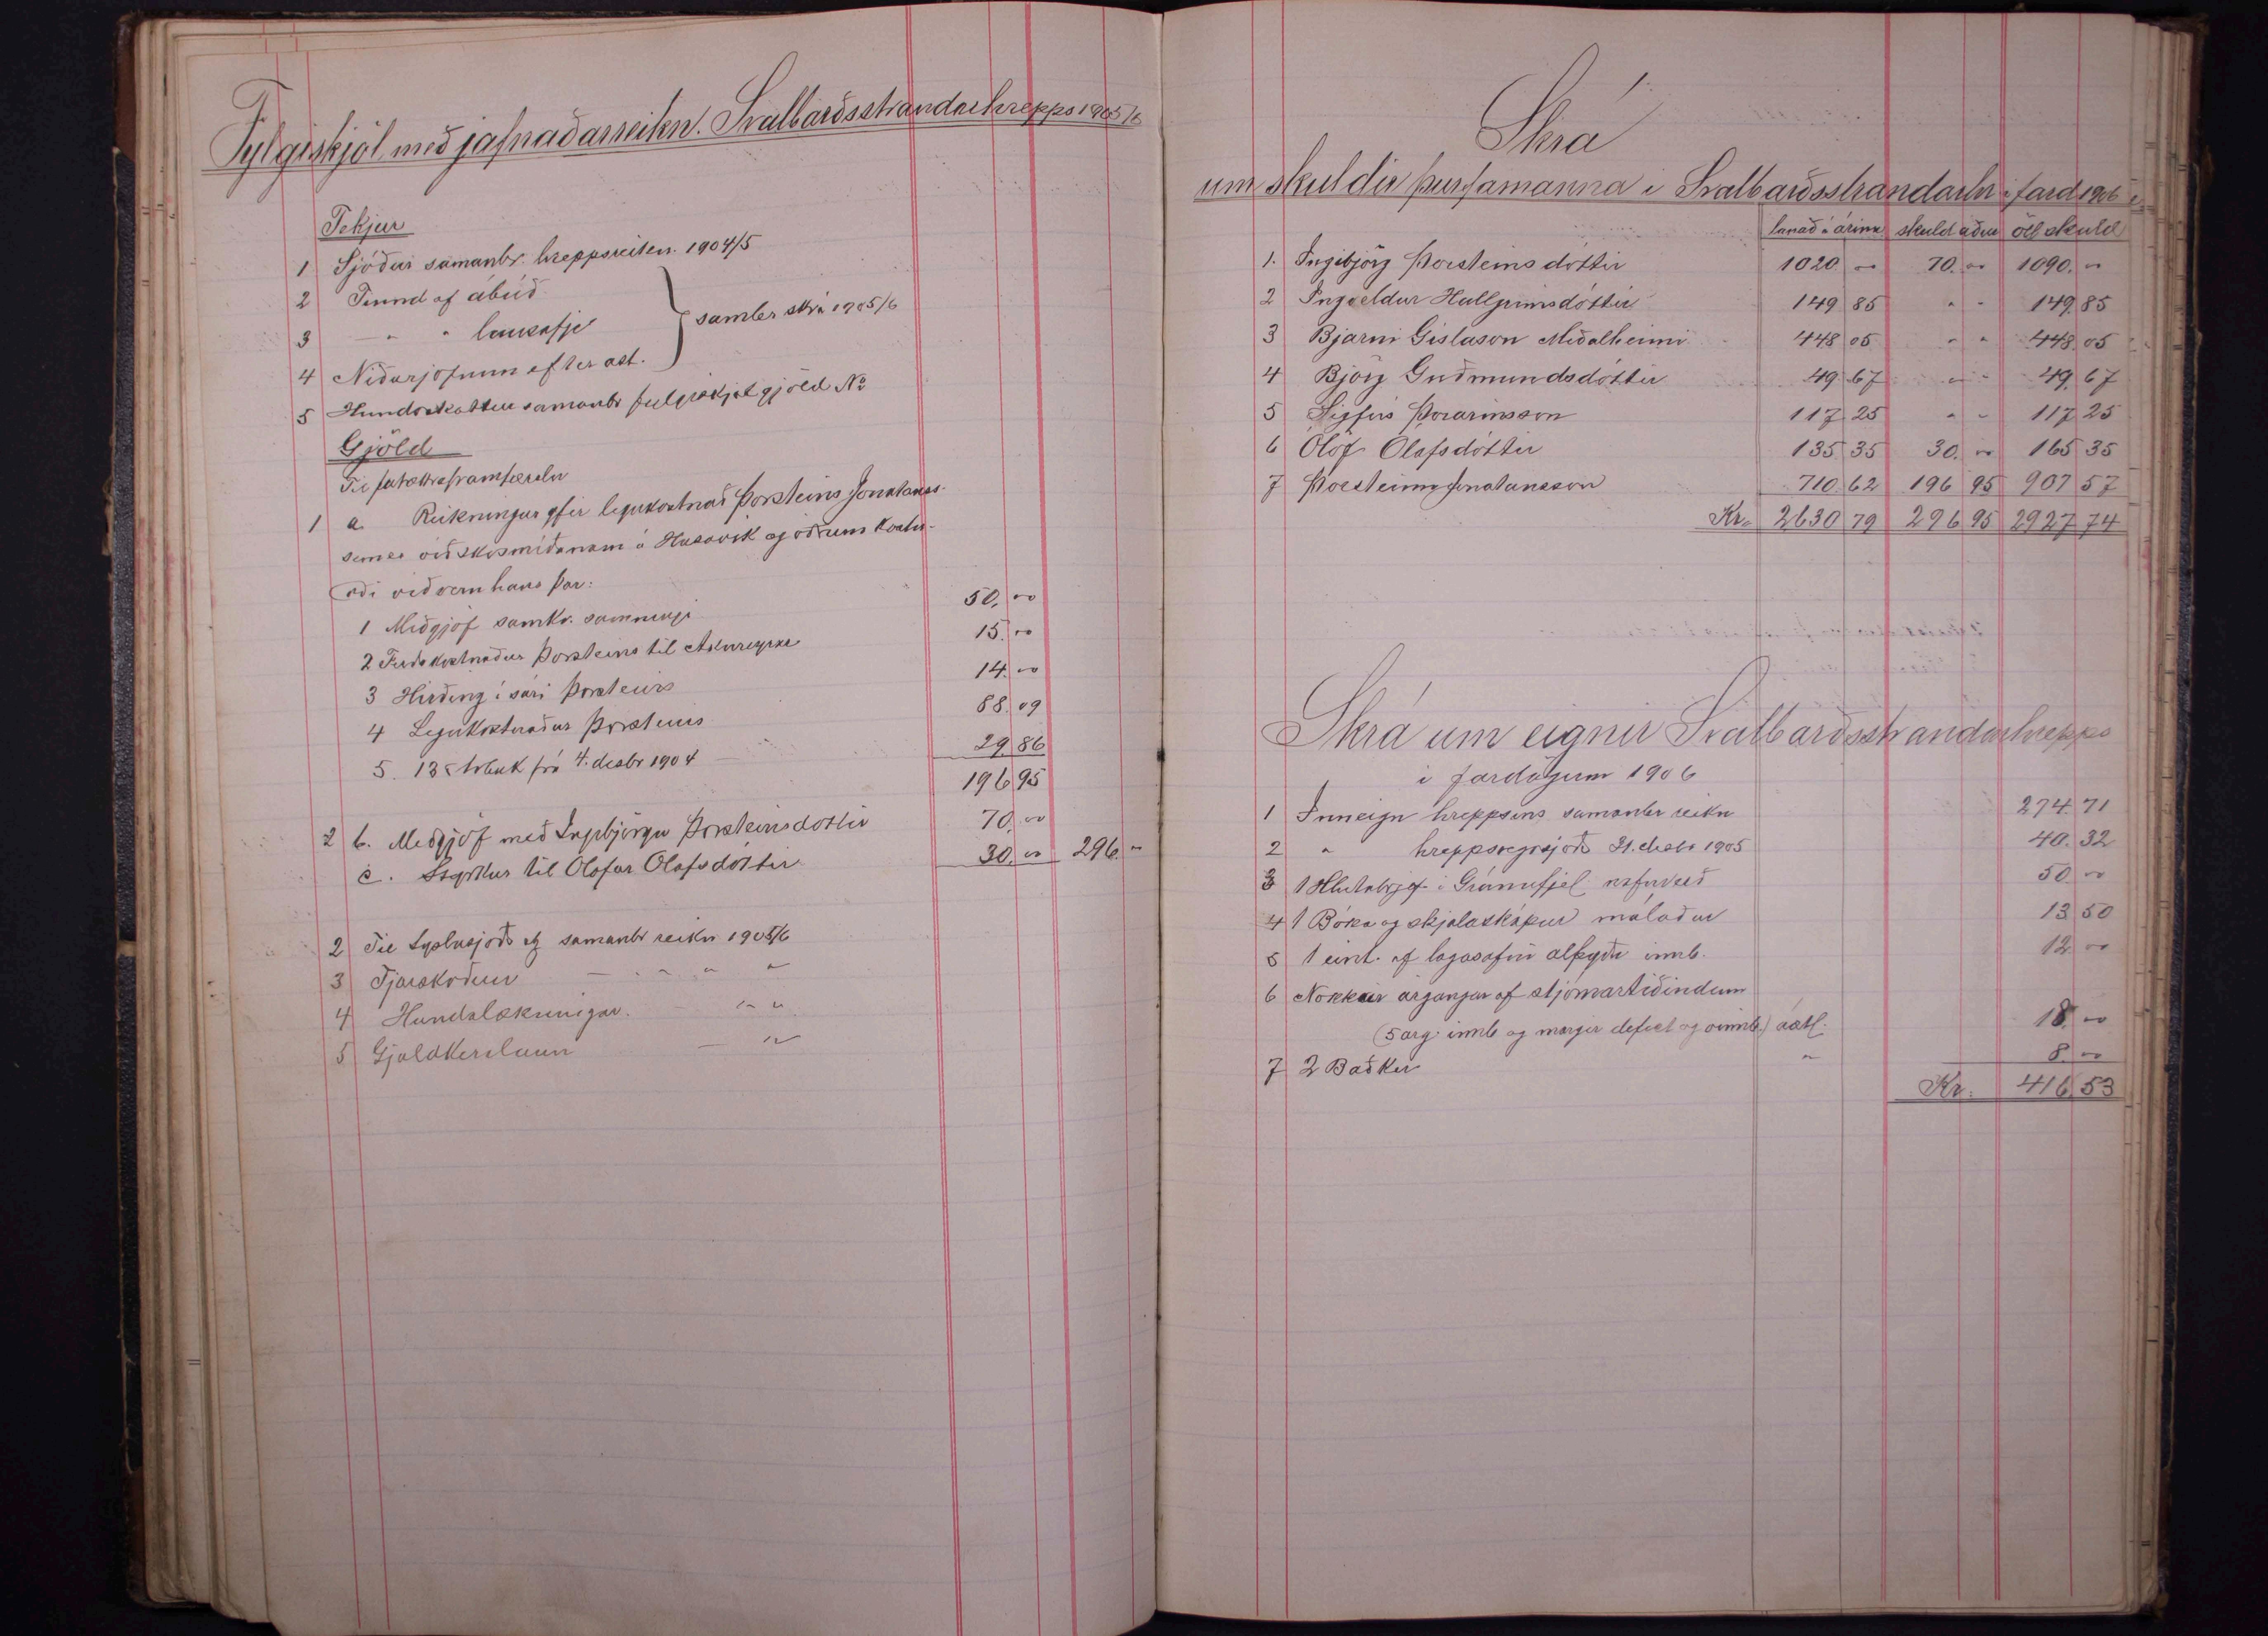 Fylgiskjöl með jafnaðarreikn. Svalbarðsstrandarhrepps 1905/6
Tekjur
1 Sjóður samanbr. hreppsreikn. 1904/5
2 Tíund af ábúð
3 — " lausafje
sambr skrá 1905/6
4 Niðurjöfnun eftir ast.
5 Hundaskattur samanbr fylgiskjal gjöld No
Gjöld
Til fátækraframfæris
1 a. Reikningur yfir legukostnað Þorsteins Jónatanss-
sem er við skósmíðanám á Húsavík og öðrum kostn-
aði við veru hans þar:
1 Meðgjöf samkv. samningi 50,00
2 Ferðakostnaður Þorsteins til Akureyrar 15.00
3 Hirðing í sári Þorsteins 14.00
4 Legukostnaður Þorsteins 88.09
5. 13 frá 4. desbr 1904 29,86
196 95
2 b. Meðgjöf með Ingibjörgu Þorsteinsdóttir 70,00
c. Styrkur til Ólafar Ólafsdóttir 30.00 296. "
2 Til Sýslusjóðs samanbr reikn 1905/6
3 Fjárskoðun — " " "
4 Hundalækningar. " "
5 Gjaldkeralaun — "
Skrá
um skuldir þurfamanna í Svalbarðsstrandarhr í fard 1906
lánað á árinu skuld áður öll skuld
1. Ingibjörg Þorsteinsdóttir 1020 " 70. 00 1090. "
2 Ingveldur Hallgrímsdóttir 149 85 " " 149,85
3 Bjarni Gíslason Meðalheimi 448 05 " " 448.05
4 Björg Guðmundsdóttir 49 67 " " 49,67
5 Sigfús Þórarinsson 117 25 " " 117,25
6 Ólöf Ólafsdóttir 135 35 30. 00 165 35
7 Þorsteinn Jónatansson 710 62 196 95 907 57
Kr. 2630 79 296 95 2927 74
Skrá um eignir Svalbarðsstrandarhrepps
í fardögum 1906
1 Inneign hreppsins samanbr reikn 274.71
2 " hreppsvegasjóðs 31. desbr 1905 40.32
3 1 Hlutabrjef í Gránufjel. nafnverð 50 00
4 1 Bóka og skjalaskápur málaður 13 50
5 1 eint. af lagasafni alþýðu innb. 12 00
6 Nokkrir árgangar af stjórnartíðindum
(5 árg. innb og margir defect og óinnb.) áætl. 18.00
7 2 Baðker " 8.00
Kr. 416 53